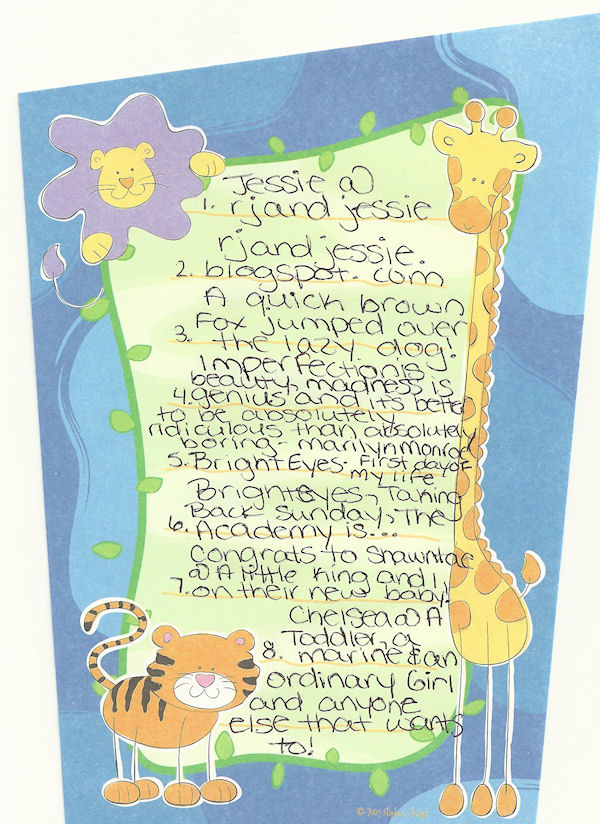 Jessie @
1. rjand jessie
rjandjessie.
2. blogspot. com
A quick brown
Fox jumped over
3. the lazy dog!
Imperfection is
beauty, madness is
4. genius and its better
to be absolutely
ridiculous than absolutely
boring - marilyn monroe
5. Bright Eyes - First day of
my life
Brighteyes, Taking
Back Sunday, The
6. Academy is...
Congrats to Shawntae
@ A little King and I
7. on their new baby!
Chelsea @ A
Toddler, a
8. marine & an
ordinary Girl
and anyone
else that wants
to!
© 2002